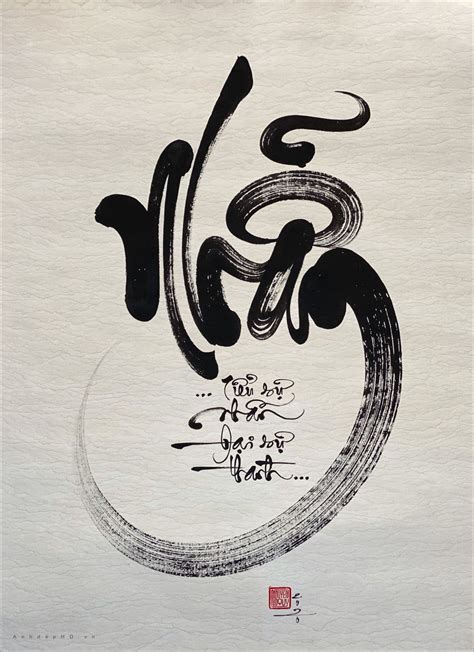 Nhẫn
... Tiểu sự
nhẫn
Đại sự
thành ...
AnhdepHD.vn